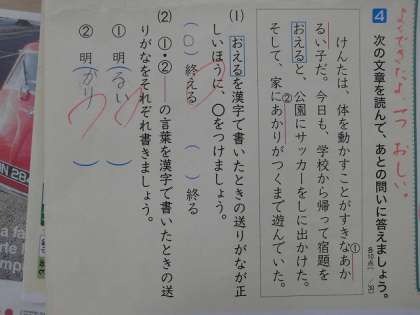 よくできたよ 一つ おしい。
4 次の文章を読んで、あとの問いに答えましょう。
各10点 /30
けんたは、体を動かすことがすきなあか
るい子だ。今日も、学校から帰って宿題を
おえると、公園にサッカーをしに出かけた。
そして、家にあかりがつくまで遊んでいた。
①
②
(1) おえるを漢字で書いたときの送りがなが正
しいほうに、○をつけましょう。
(○)終える ( )終る
(2) ①・②の言葉を漢字で書いたときの送
りがなをそれぞれ書きましょう。
① 明(るい)
② 明(かり)